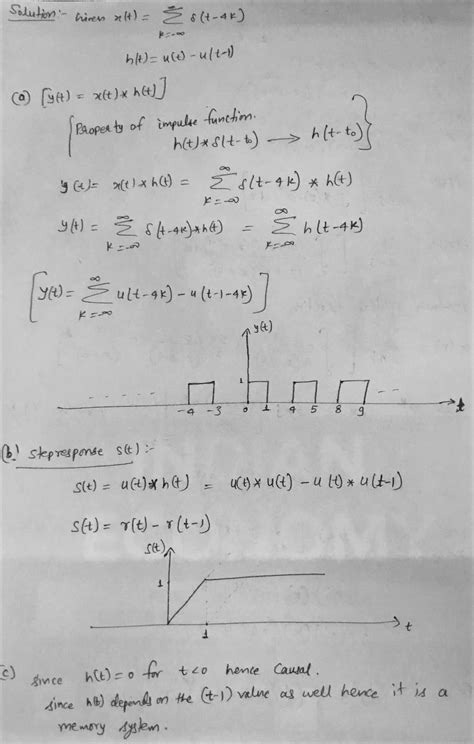 Solution:- Given x(t) = ∞Σk=-∞ δ(t-4k)
h(t) = u(t) - u(t-1)
(a) [y(t) = x(t) * h(t)]
[Property of impulse function.
h(t) * δ(t-t₀) → h(t-t₀)}
y(t) = x(t) * h(t) = ∞Σk=-∞ δ(t-4k) * h(t)
y(t) = ∞Σk=-∞ δ(t-4k) * h(t) = ∞Σk=-∞ h(t-4k)
[y(t) = ∞Σk=-∞ u(t-4k) - u(t-1-4k)]
y(t)
1
-4 -3 0 1 4 5 8 9 t
(b) step response s(t) :-
s(t) = u(t) * h(t) = u(t) * u(t) - u(t) * u(t-1)
s(t) = r(t) - r(t-1)
s(t)
1
1 t
(c) since h(t) = 0 for t<0 hence causal.
since h(t) depends on the (t-1) value as well hence it is a
memory system.